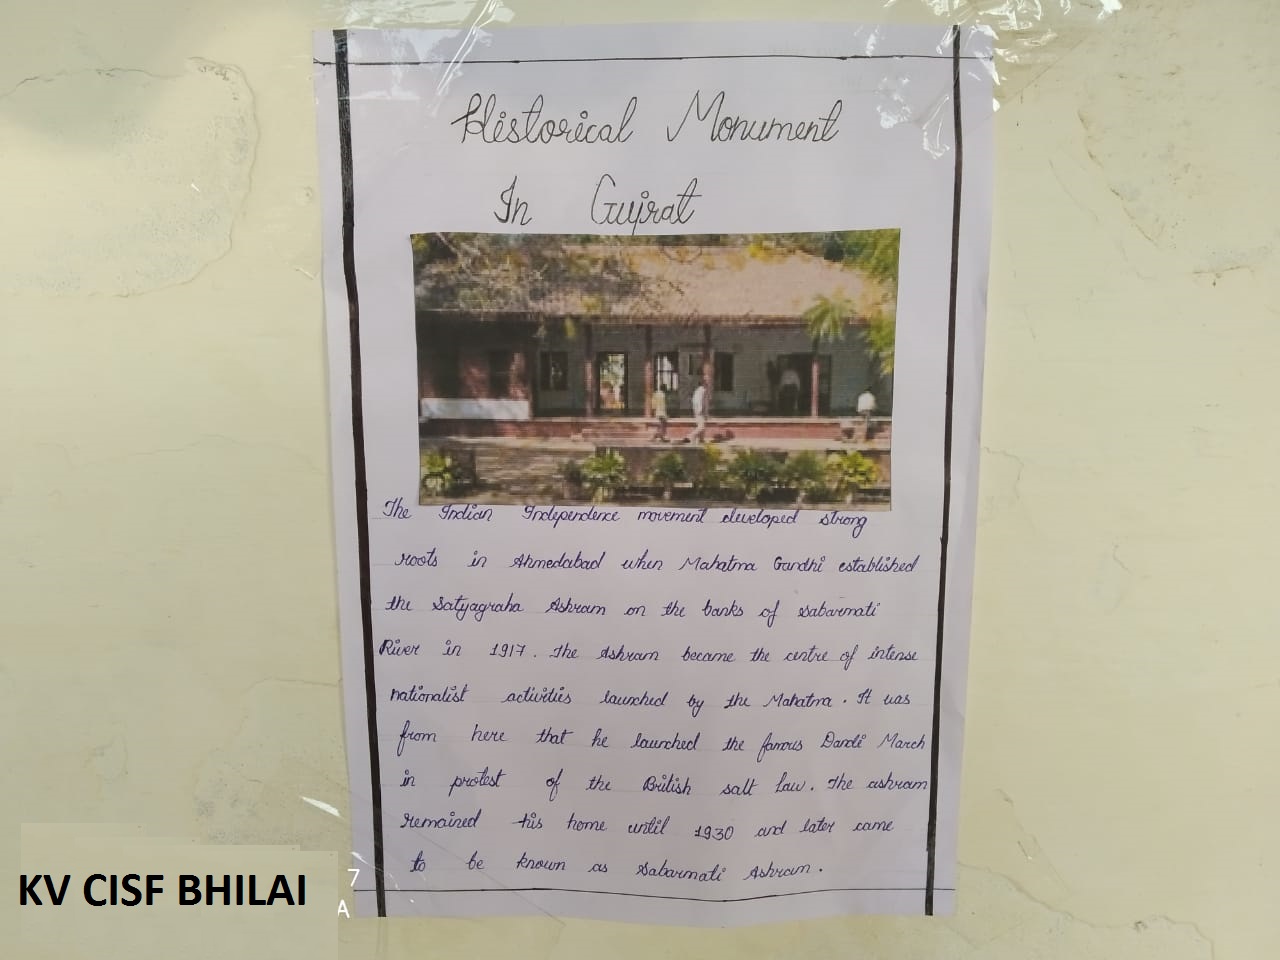 Historical Monument
In Gujrat
The Indian Independence movement developed strong
roots in Ahmedabad when Mahatma Gandhi established
the Satyagraha Ashram on the banks of Sabarmati
River in 1917. The Ashram became the centre of intense
nationalist activities launched by the Mahatma. It was
from here that he launched the famous Dandi March
in protest of the British salt law. The ashram
remained his home until 1930 and later came
to be known as Sabarmati Ashram.
7
A
KV CISF BHILAI